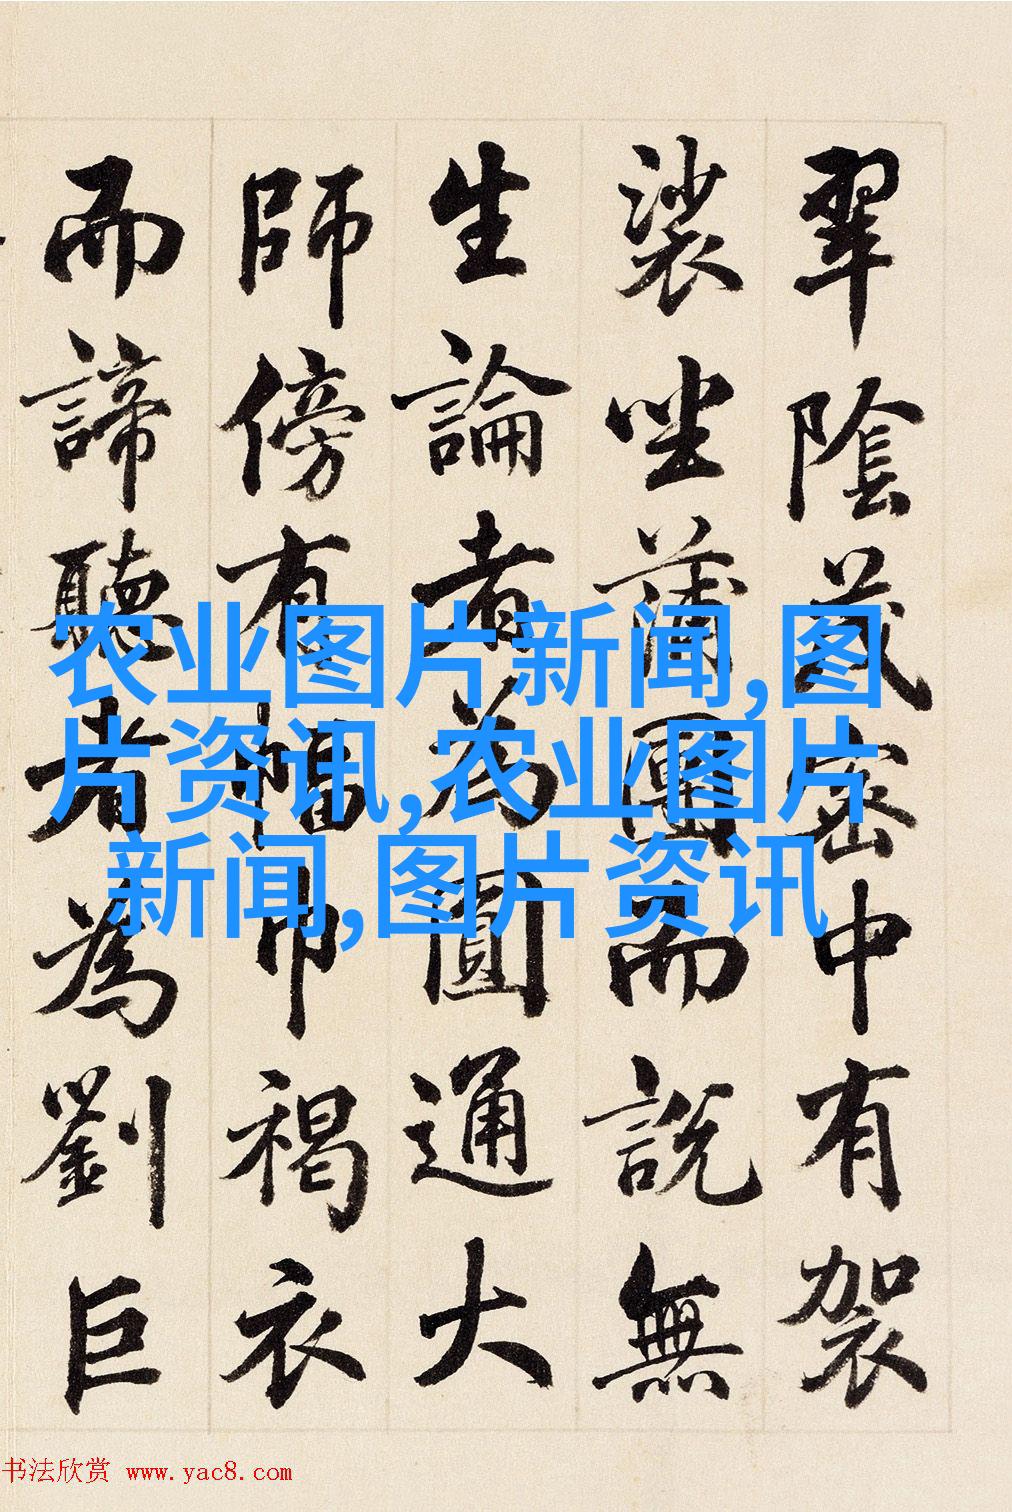 翠陰茂密中有袈
裟坐蒲團而說無
生論者為圓通大
師傍有幅巾褐衣
而諦聽者為劉巨
农业图片新闻,图
片资讯,农业图片
新闻,图片资讯
书法欣赏 www.yac8.com